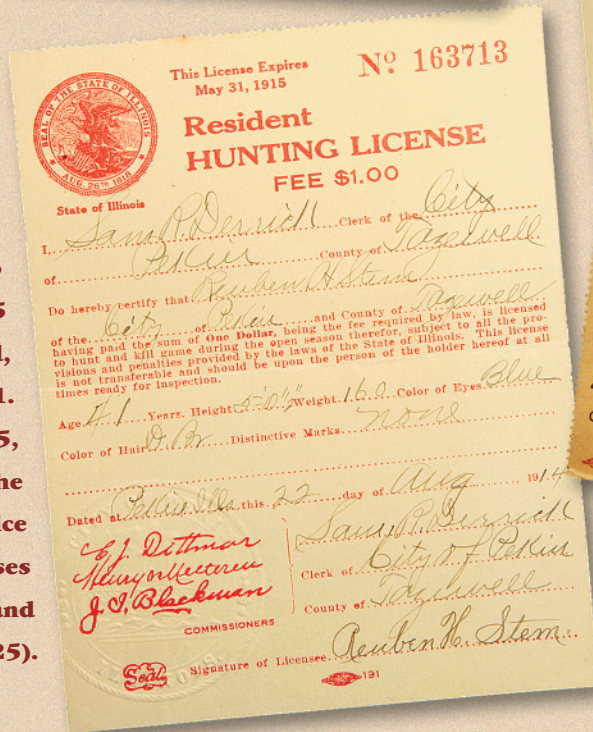 This License Expires
May 31, 1915
Nº 163713
Resident
HUNTING LICENSE
FEE $1.00
SEAL OF THE STATE OF ILLINOIS
AUG. 26TH 1818
State of Illinois
I, Sam R. Derrick Clerk of the City
of Pekin County of Tazewell
Do hereby certify that Reuben H Stem
of the City of Pekin and County of Tazewell
having paid the sum of One Dollar, being the fee required by law, is licensed
to hunt and kill game during the open season therefor, subject to all the pro-
visions and penalties provided by the laws of the State of Illinois. This license
is not transferable and should be upon the person of the holder hereof at all
times ready for inspection.
Age 41 Years. Height 5-0½" Weight 160 Color of Eyes Blue
Color of Hair D. Br Distinctive Marks none
Dated at Pekin Ills this 22 day of Aug, 1914
E. J. Dittmar
Henry
J. I. Blackman
COMMISSIONERS
Sam R. Derrick
Clerk of City of Pekin
County of Tazewell
Seal
Signature of Licensee Reuben H. Stem
191
5
,
1.
5,
he
ice
ses
und
25).